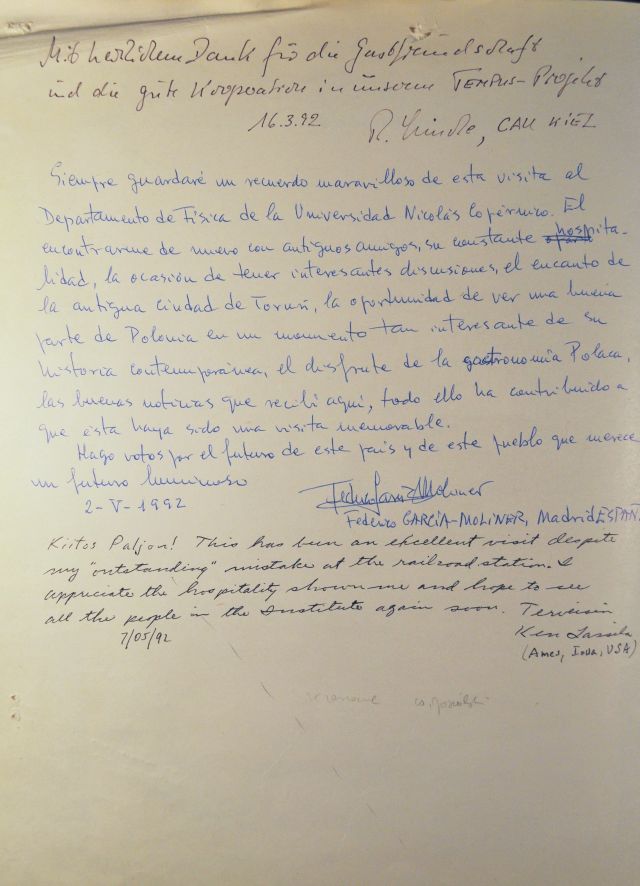 Mit herzlichem Dank für die Gastfreundschaft
und die gute Kooperation in unserem TEMPUS-Projekt
16.3.92 R. CAU KIEL
Siempre guardaré un recuerdo maravilloso de esta visita al
Departamento de Física de la Universidad Nicolás Copérnico. El
encontrarme de nuevo con antiguos amigos, su constante hospita-
lidad, la ocasión de tener interesantes discusiones, el encanto de
la antigua ciudad de Toruń, la oportunidad de ver una buena
parte de Polonia en un momento tan interesante de su
historia contemporánea, el disfrute de la gastronomía Polaca,
las buenas noticias que recibí aquí, todo ello ha contribuido a
que ésta haya sido una visita memorable.
Hago votos por el futuro de este país y de este pueblo que merece
un futuro luminoso
2-V-1992
Federico GARCÍA-MOLINER, Madrid ESPAÑ
Kiitos Paljon! This has been an excellent visit despite
my "outstanding" mistake at the railroad station. I
appreciate the hospitality shown me and hope to see
all the people in the Institute again soon. Terveisin
7/05/92 Ken Lassila
(Ames, Iowa, USA)